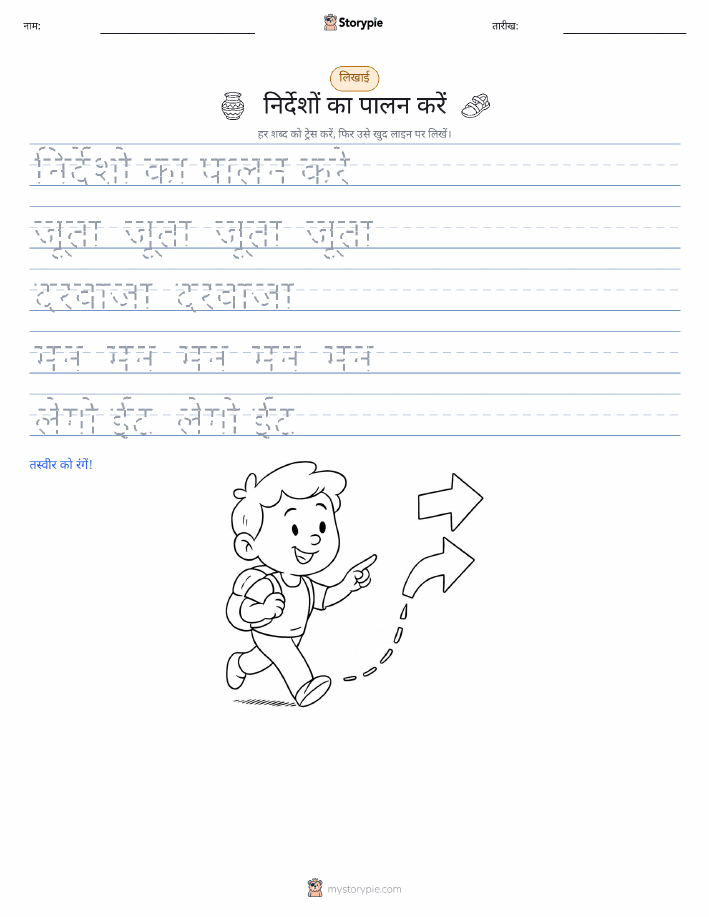 नाम:
Storypie
तारीख:
लिखाई
निर्देशों का पालन करें
हर शब्द को ट्रेस करें, फिर उसे खुद लाइन पर लिखें।
निर्देशो का पालन करे
जूता जूता जूता जूता
दरवाजा दरवाजा
मन मन मन मन मन
लेगो ईट लेगो ईट
तस्वीर को रंगें!
mystorypie.com